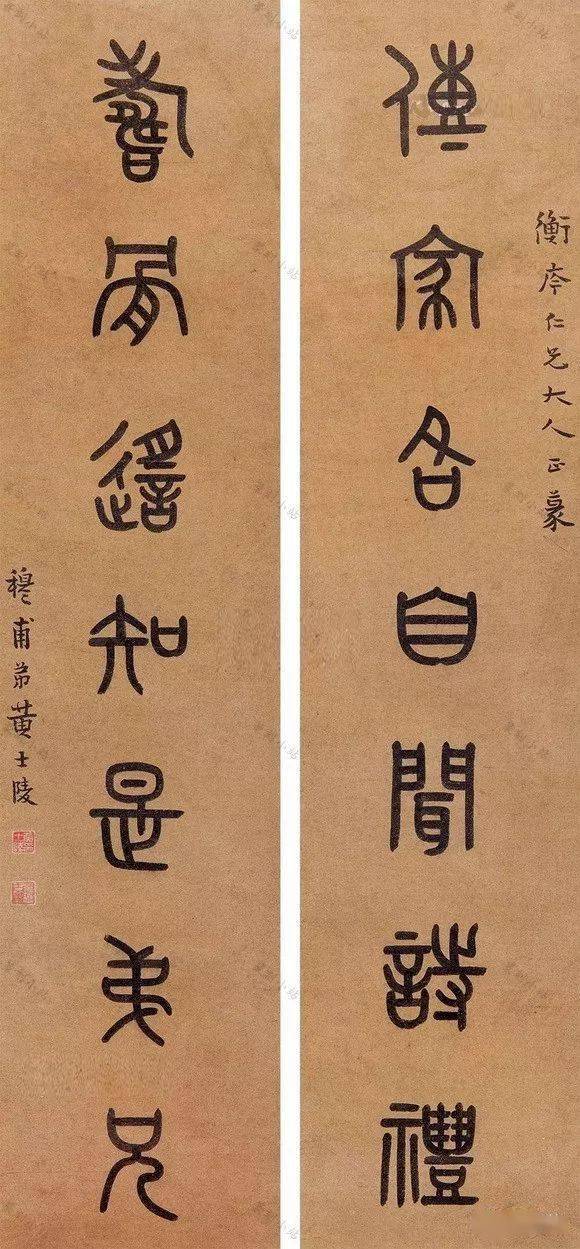 衡仁兄大人正篆
傳家各自聞詩禮
壽骨遙知是弟兄
穆甫弟黄士陵